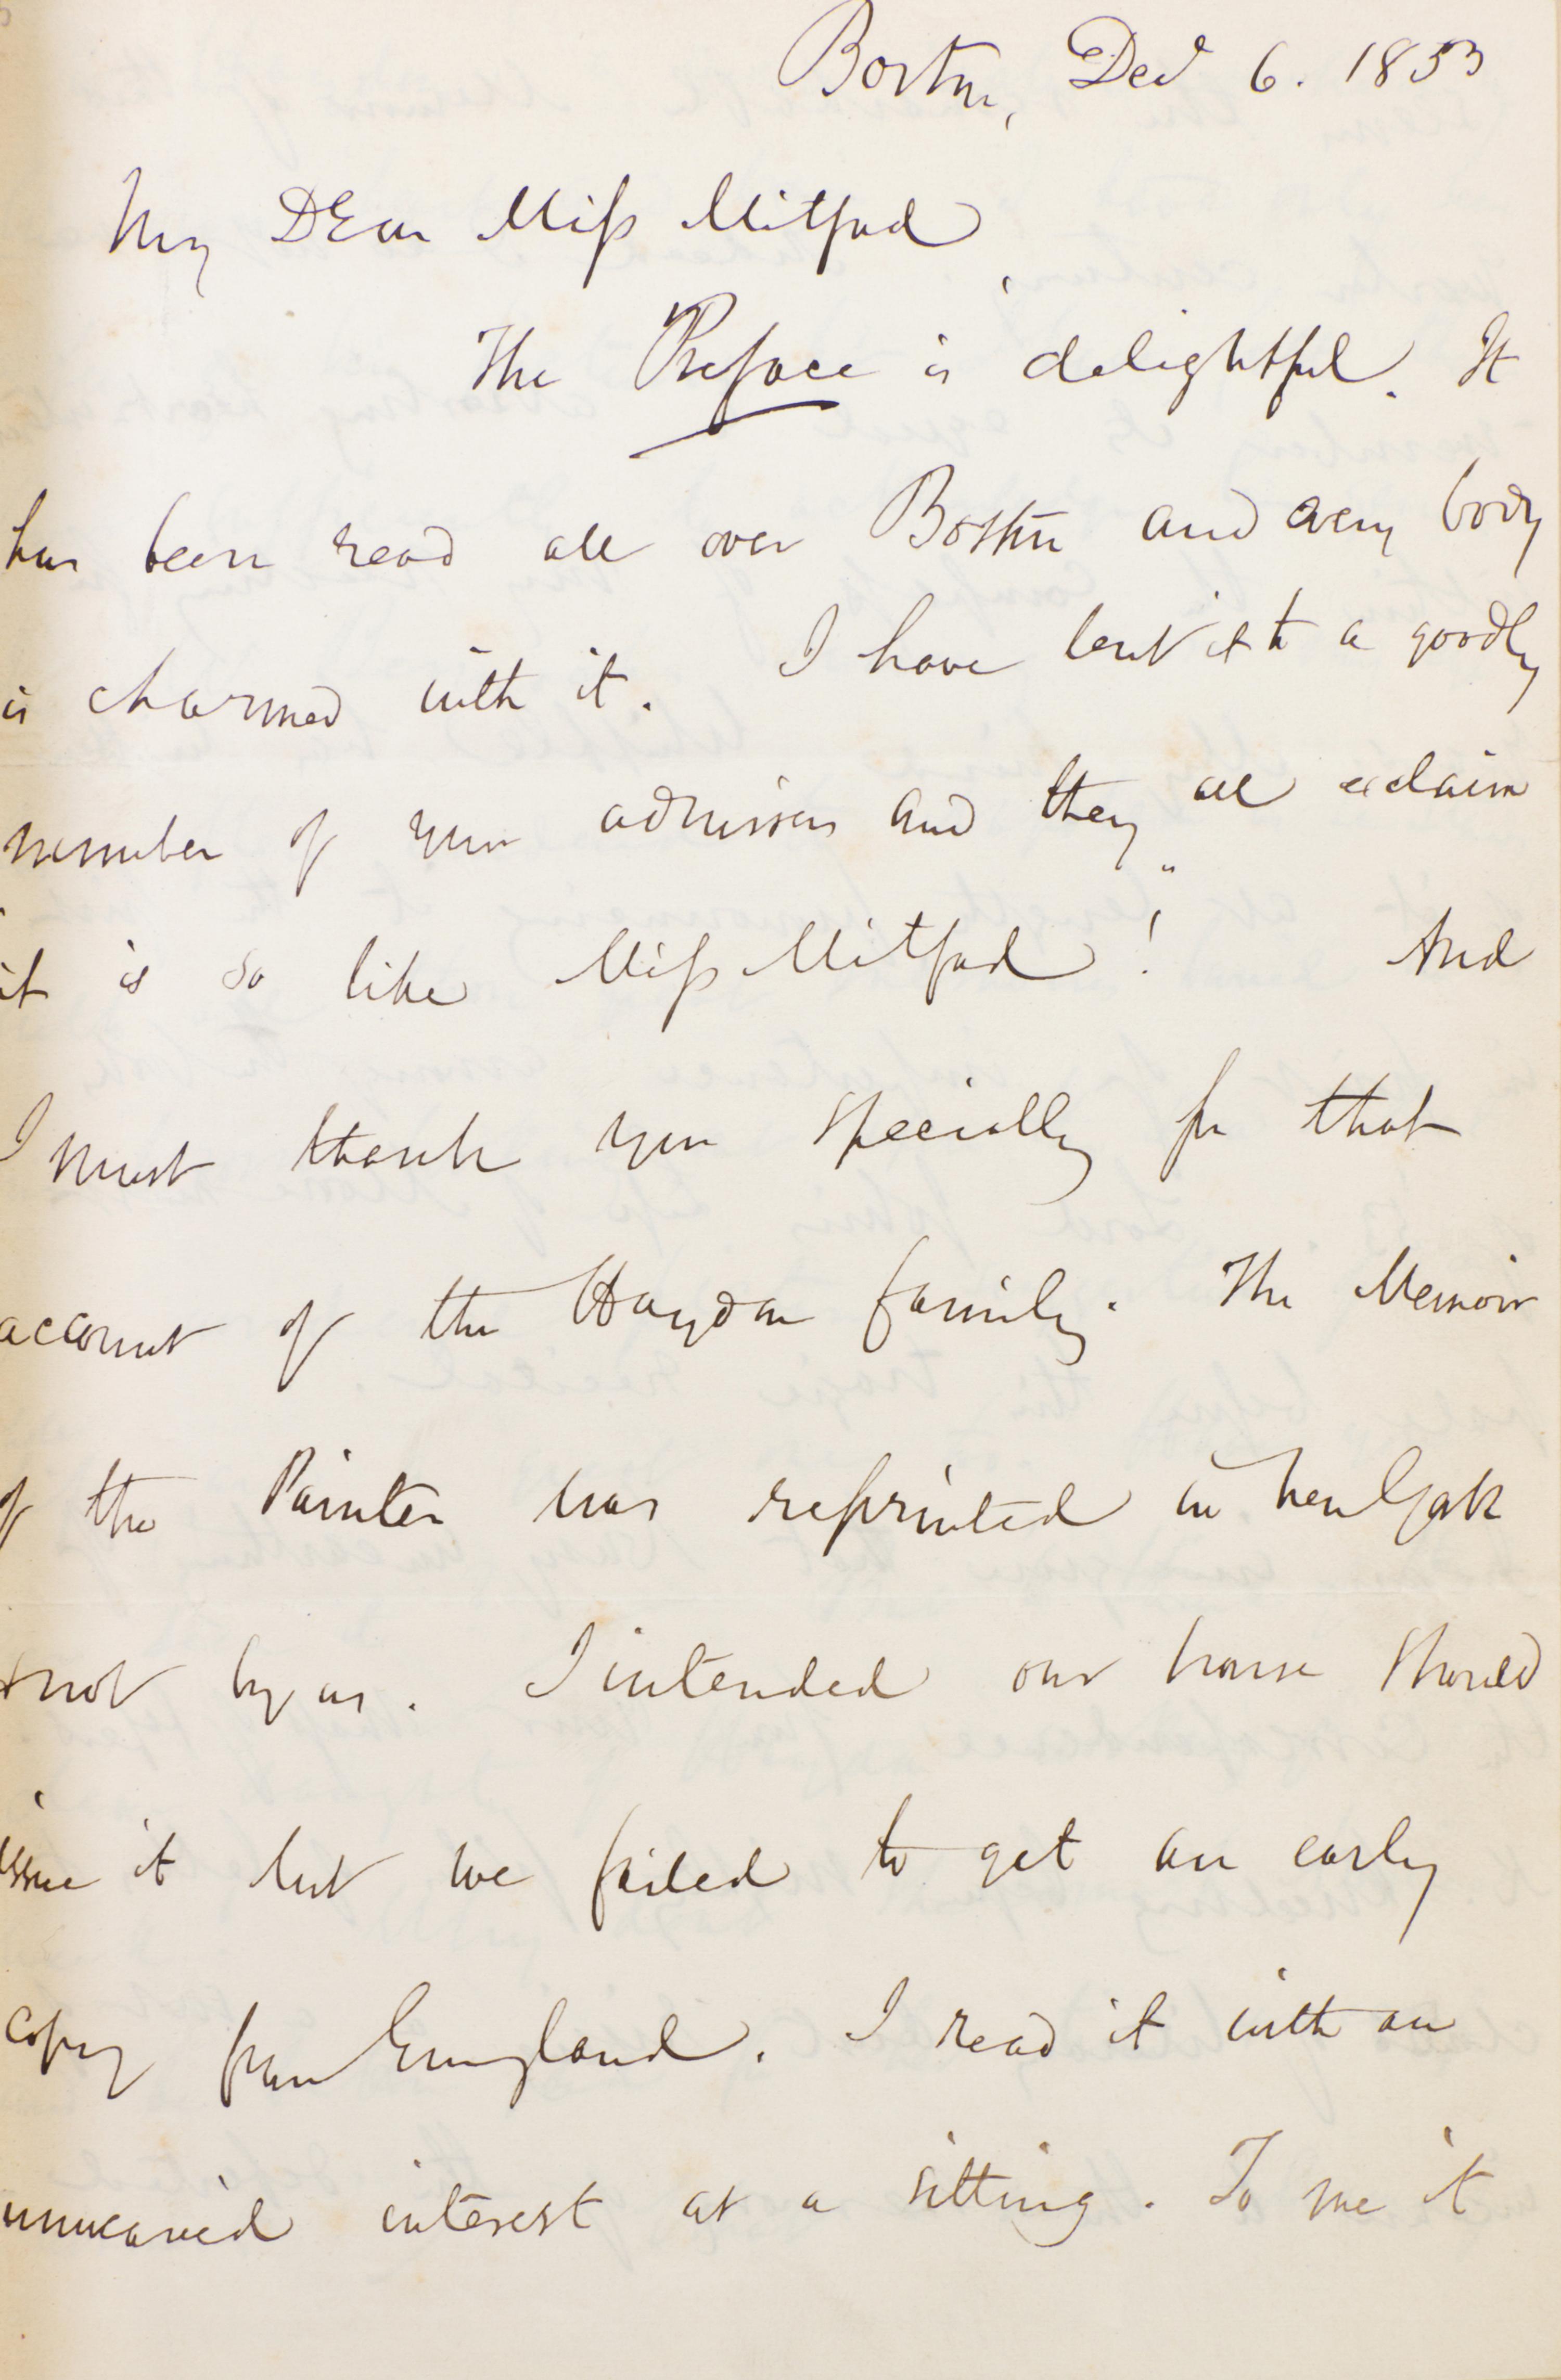 Boston, Dec 6. 1853
My Dear Miss Mitford,
The Preface is delightful. It
has been read all over Boston and every body
is charmed with it. I have lent it to a goodly
number of your admirers and they all exclaim "
it is so like Miss Mitford! And
I must thank you specially for that
account of the Haydon family. The Memoir
of the Painter was reprinted in New York
& not by us. I intended our house should
issue it but we failed to get an early
copy from England. I read it with an
unwearied interest at a sitting. To me it